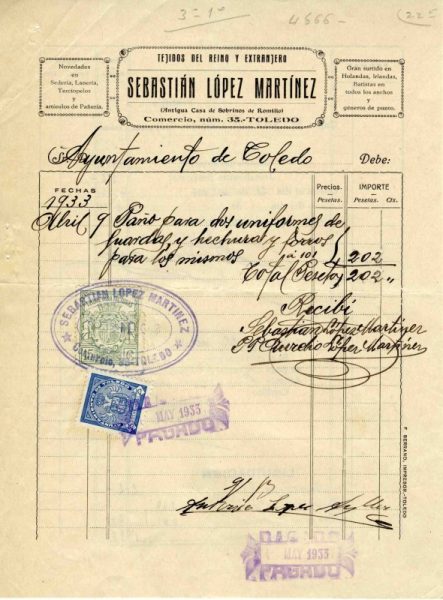 3-1º
4666-
(225)
TEJIDOS DEL REINO Y EXTRANJERO
SEBASTIÁN LÓPEZ MARTÍNEZ
(Antigua Casa de Sobrinos de Romillo)
Comercio, núm. 35.-TOLEDO
Novedades
en
Sedería, Lanería,
Terciopelos
y
artículos de Pañería.
Gran surtido en
Holandas, Irlandas,
Batistas en
todos los anchos
y
géneros de punto.
Ayuntamiento de Toledo Debe:
FECHAS Precios. Pesetas. IMPORTE Pesetas. Cts.
1933
Abril 9 Paño para dos uniformes de
Guardas, y hechura y forros
para los mismos á 101 202
Total Pesetas 202 "
Recibí
Sebastian López Martinez
P.P. Aurelio López Martínez
SEBASTIÁN LÓPEZ MARTÍNEZ
Comercio, 35-TOLEDO
MAY 1933
PAGADO
Antonio Lopez
MAY 1933
PAGADO
F. SERRANO, IMPRESOR.-TOLEDO